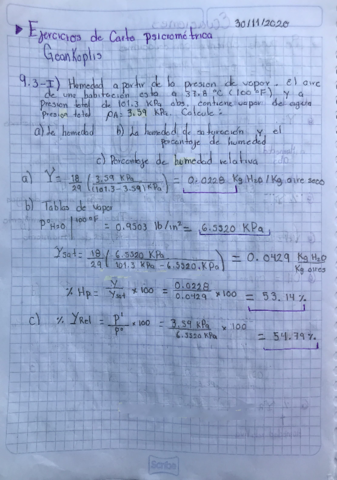 30/11/2020
▸ Ejercicios de Carta psiciométrica
Geankoplis
9.3-I) Humedad a partir de la presion de vapor. el aire
de una habitación esta a 37.8 °C (100 °F) y a
presion total de 101.3 KPa abs. contiene vapor de agua
presion total PA= 3.59 KPa. Calcule:
a) La humedad b) La humedad de saturación y el
porcentaje de humedad
c) Porcentaje de humedad relativa
a) Y = 18/29 (3.59 KPa / (101.3 - 3.59) KPa) = 0.0228 Kg H2O / Kg aire seco
b) Tablas de vapor
P°H2O | 100°F = 0.9503 lb/in² = 6.5520 KPa
Ysat = 18/29 (6.5520 KPa / 101.3 KPa - 6.5520 KPa) = 0.0429 Kg H2O / Kg aire s
% Hp = Y/Ysat × 100 = 0.0228/0.0429 × 100 = 53.14 %
c) % YRel = P'/P° × 100 = 3.59 KPa / 6.5520 KPa × 100 = 54.79 %
Scribe